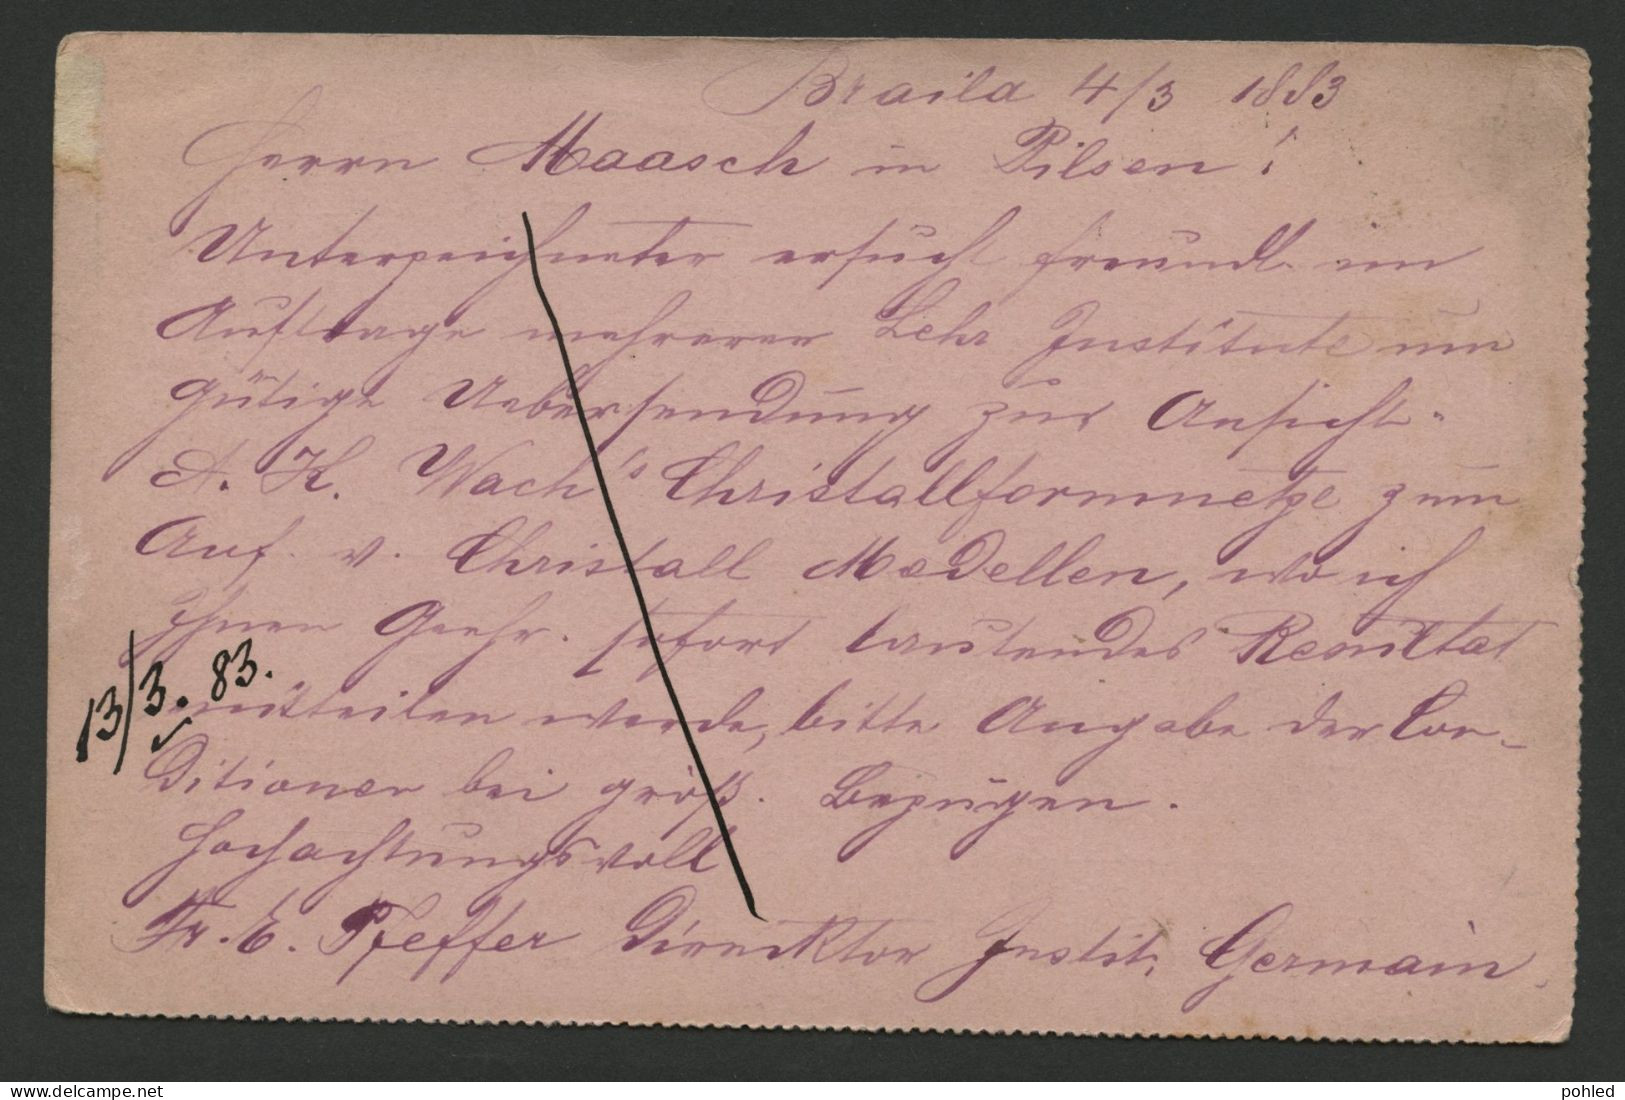 Braila 4/3 1883
Herrn Maasch in Pilsen!
Unterzeichneter ersucht freundl. im
Auftrage mehrerer Lehr Institute um
gütige Uebersendung zur Ansicht
A. K. Wach's Christallformnetze zum
Auf. v. Christall Modellen, wo ich
Ihnen Geehr. sofort lautendes Resultat
13/3. 83.
mitteilen werde, bitte Angabe der Con-
ditionen bei größ. Bezügen.
Hochachtungsvoll
Fr. E. Pfeffer Direcktor Instit. Germain
pohled